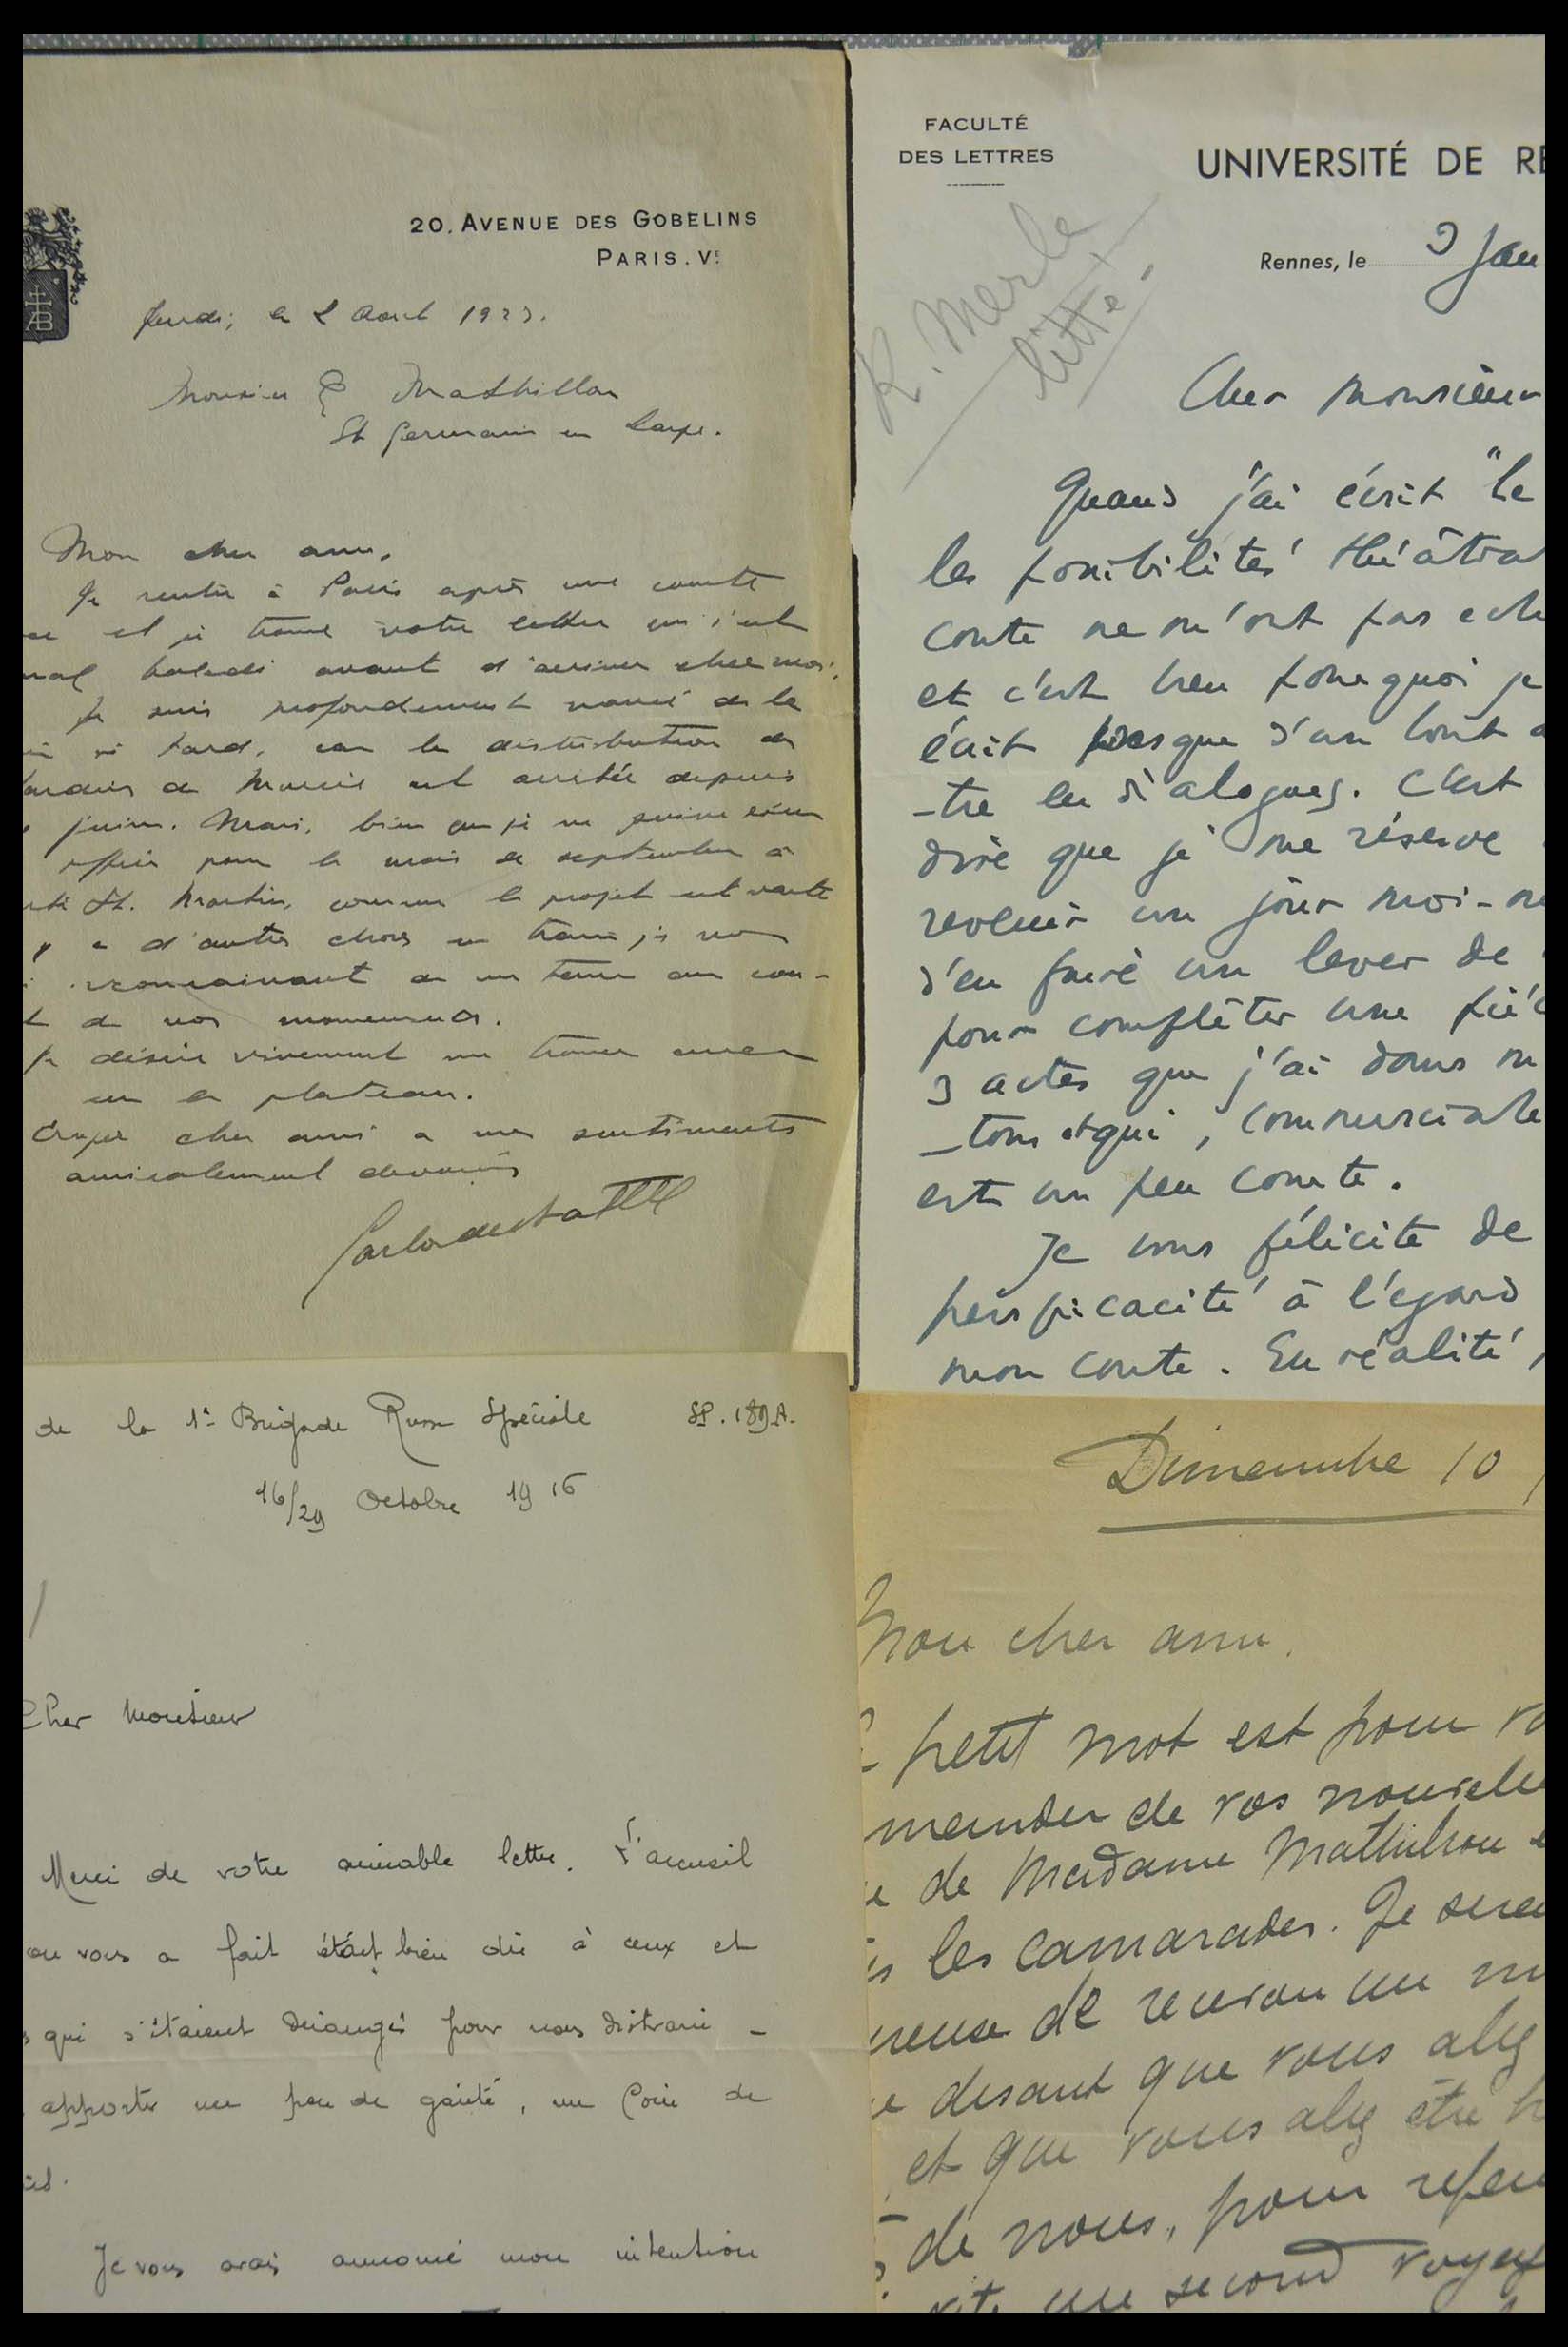 20. AVENUE DES GOBELINS
PARIS. Ve
AB
Jeudi, le 2 Aout 1923.
Monsieur E Mathillon
St Germain en Laye.
Mon cher ami,
Je rentre à Paris après une courte
et je trouve votre lettre qui s'est
baladé avant d'arriver chez moi.
Je suis profondément navré de la
si tard, car la distribution de
de est arrêtée depuis
juin. Mais, bien que je ne
pour le mois de septembre à
St. Martin, comme le projet est vaste
y a d'autres choses en train, je
reconnaissant de me tenir au cou-
t de vos
Je désire vivement me trouver avec
sur le plateau.
Croyez cher ami a mes sentiments
amicalement dévoués
FACULTÉ
DES LETTRES
UNIVERSITÉ DE RE
Rennes, le 3 Jan
R. Merle
litté
Cher Monsieur
Quand j'ai écrit "le
les possibilités théâtra
conte ne m'ont pas écha
et c'est bien pourquoi je
écrit presque d'un bout à
-tre en dialogues. C'est
dire que je me réserve
revenir un jour moi-m
d'en faire un lever de
pour compléter une piè
3 actes que j'ai dans m
et qui, commerciale
est un peu courte.
Je vous félicite de
perspicacité à l'égard
mon conte. En réalité,
de la 1e Brigade Russe Spéciale SP. 189A.
16/29 Octobre 1916
Cher Monsieur
Merci de votre aimable lettre. L'accueil
vous a fait était bien dû à ceux et
s qui s'étaient dérangés pour nous distraire -
apporter un peu de gaité, un Coin de
Je vous avais annoncé mon intention
Dimanche 10
Mon cher ami.
petit mot est pour vo
mander de vos nouvelle
de Madame Mathillon e
les camarades. Je serai
reuse de recevoir un m
disant que vous allez
et que vous allez être
de nous, pour
vite un second voyag